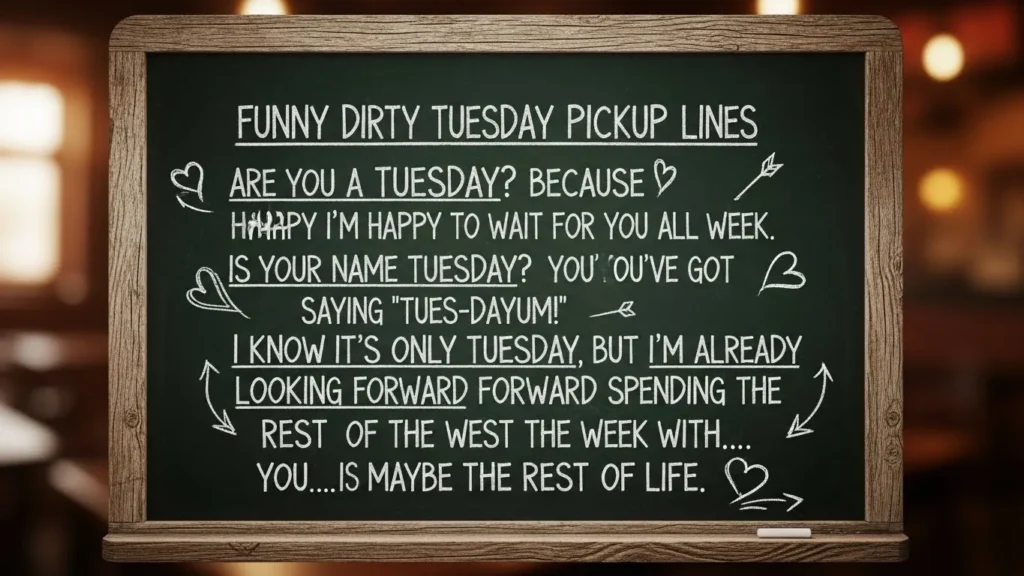 FUNNY DIRTY TUESDAY PICKUP LINES
ARE YOU A TUESDAY? BECAUSE
I'M HAPPY TO WAIT FOR YOU ALL WEEK.
IS YOUR NAME TUESDAY? YOU' 'OU'VE GOT
SAYING "TUES-DAYUM!"
I KNOW IT'S ONLY TUESDAY, BUT I'M ALREADY
LOOKING FORWARD FORWARD SPENDING THE
REST OF THE WEST THE WEEK WITH....
YOU....IS MAYBE THE REST OF LIFE.